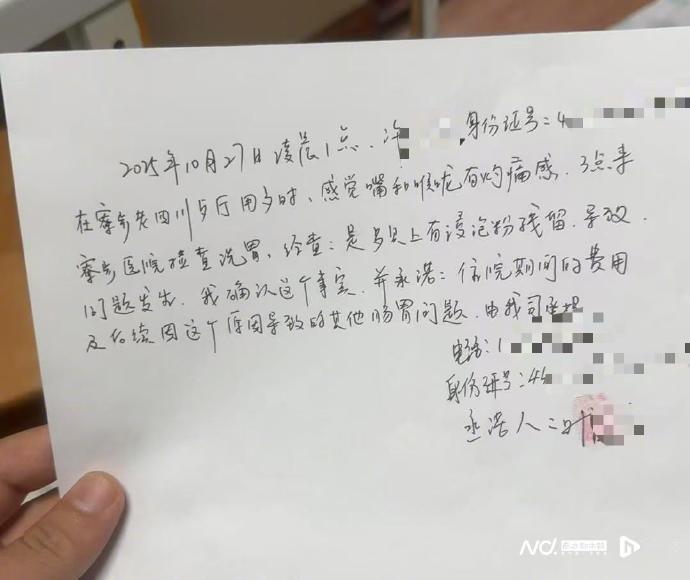 2025年10月27日凌晨1点、许 身份证号：4
在寮步老四川歺厅用歺时、感觉嘴和喉咙有灼痛感、3点来
寮步医院检查洗胃、经查：是歺具上有浸泡粉残留、导致
问题发生、我确认这个事实、并承诺：住院期间的费用
及后续因这个原因导致的其他肠胃问题、由我司承担
电话：1
身份证号：44
承诺人：叶
N